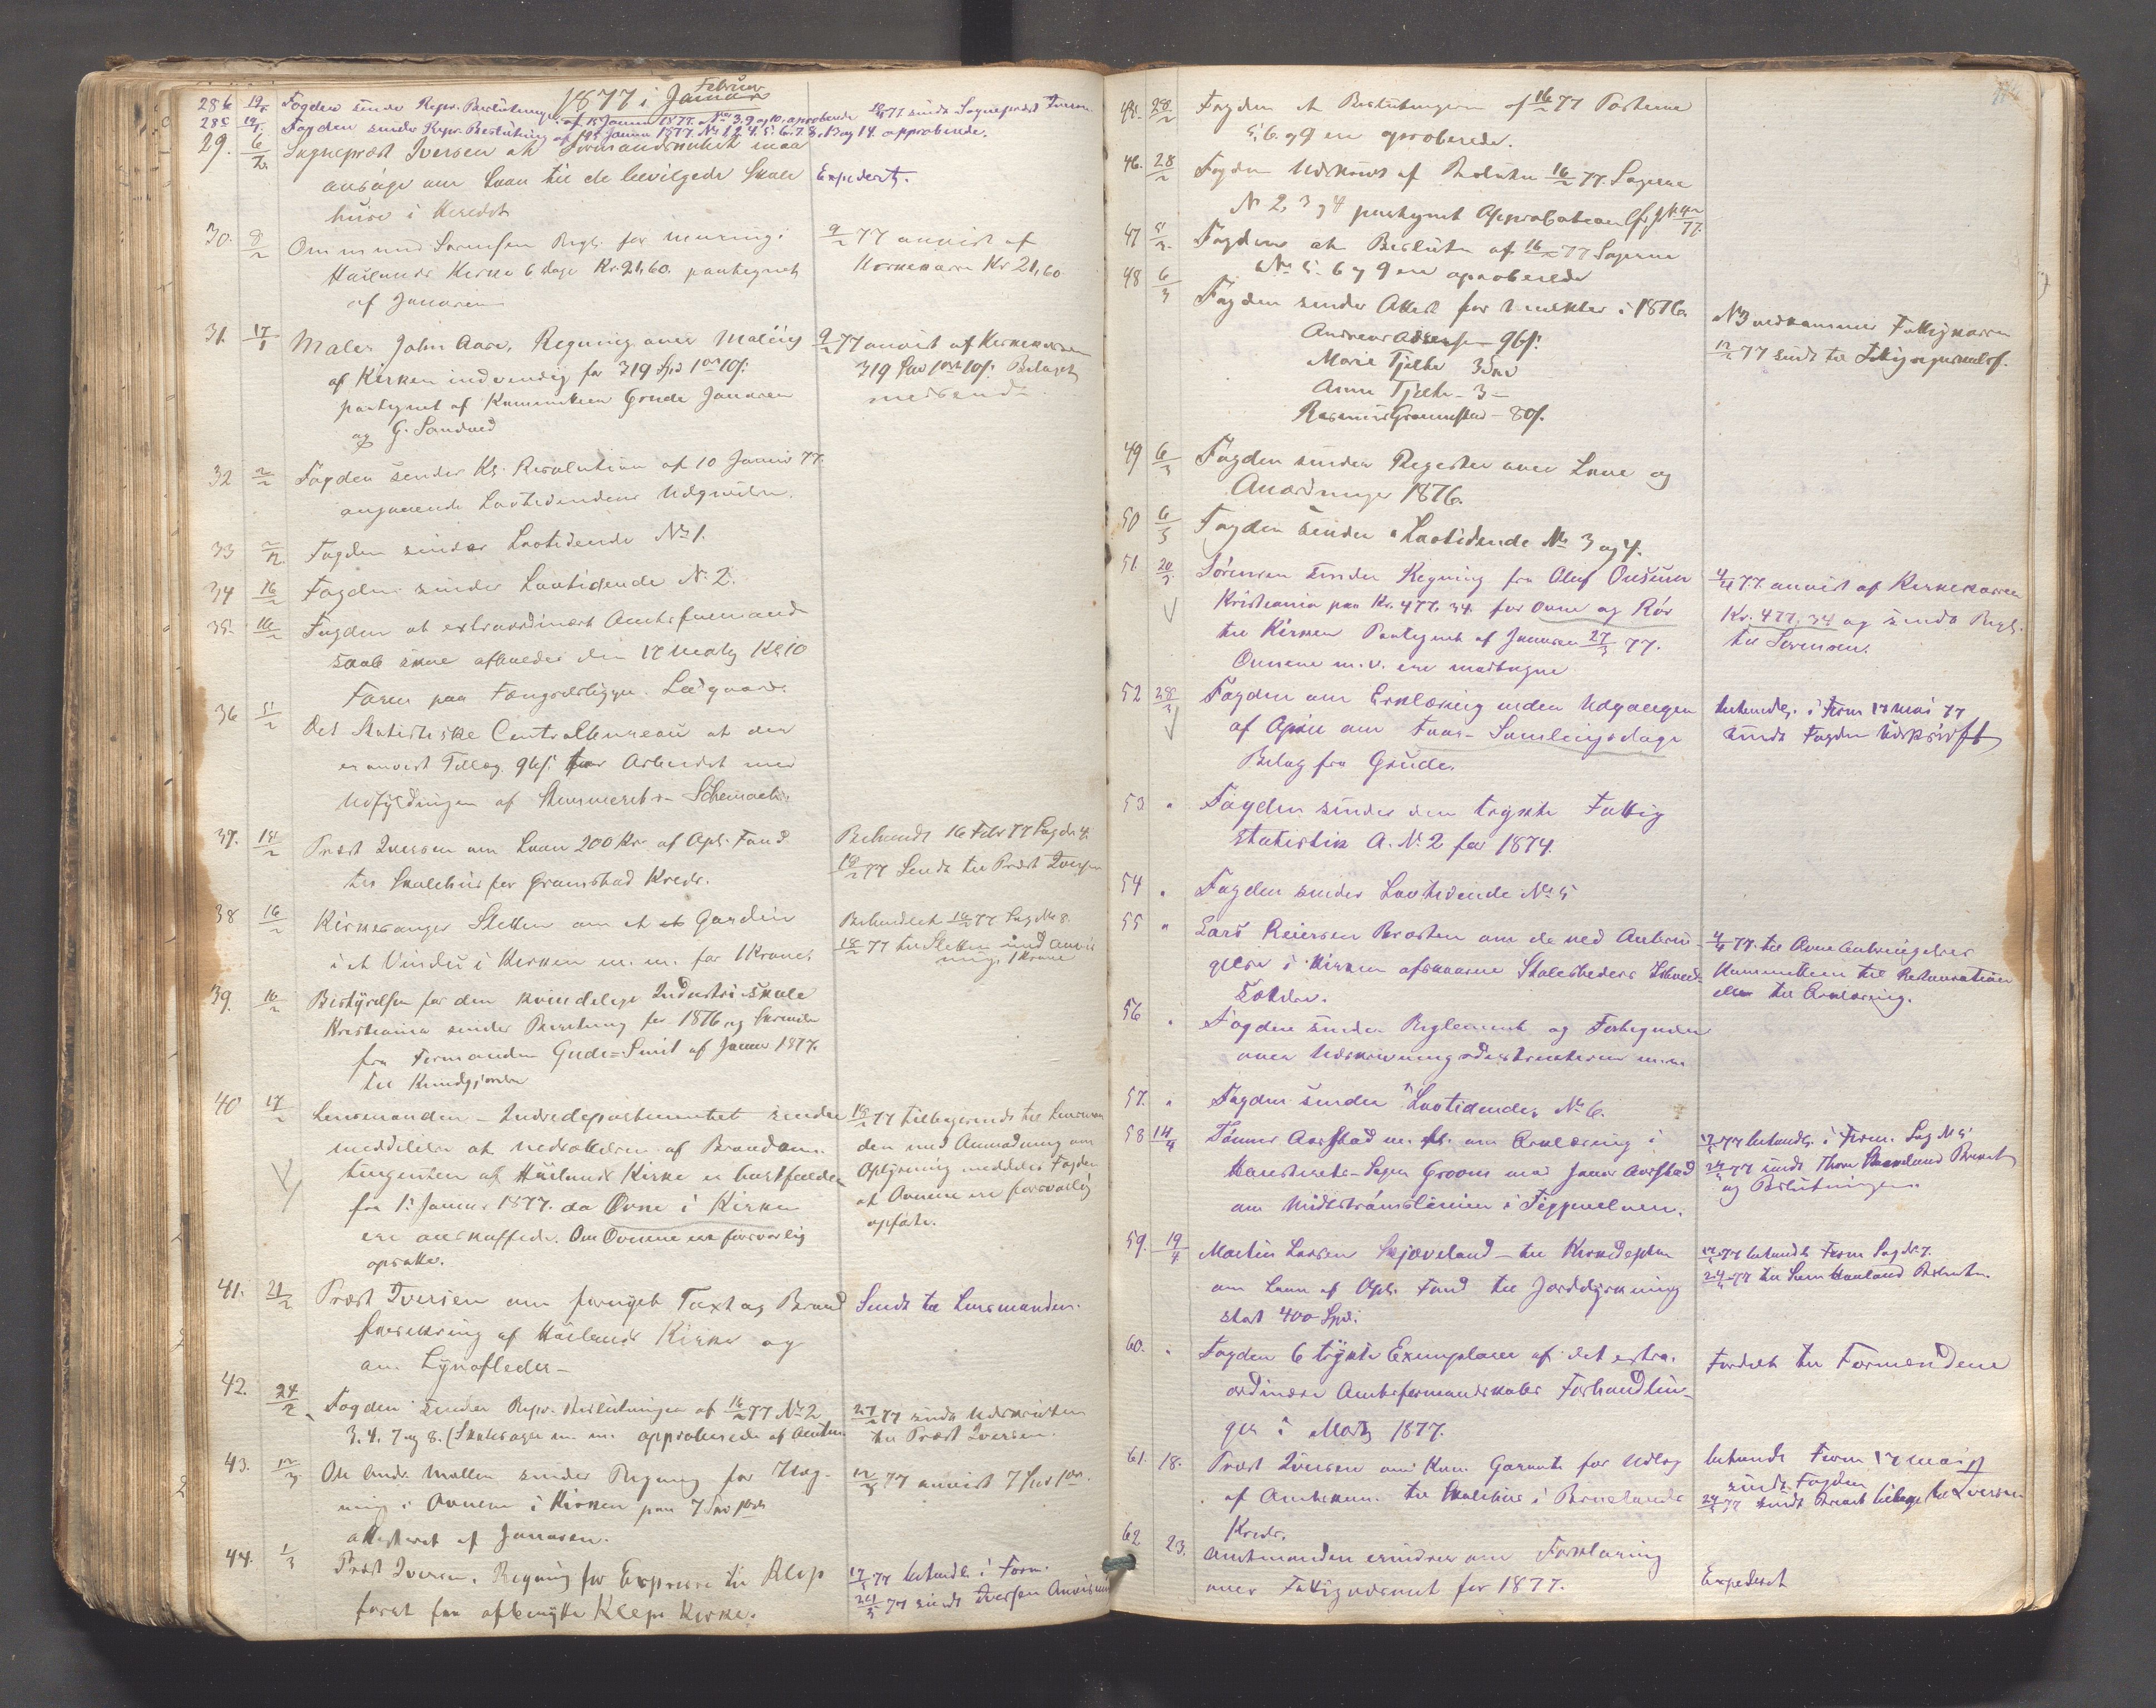 1877 i Januar
Februar
28b 19/1 Fogden sender Repr. Beslutninger af 15 Januar 1877. No 3. 9 og 10. approberede
28c 19/1 Fogden sender Repr. Beslutning af 15 Januar 1877. No 1. 2. 4. 5. 6. 7. 8. 13 og 14. approberede.
29. 6/2 Sognepræst Iversen at Formandskabet maa
ansøge om Laan til de bevilgede Skole
huse i Heredet
Expedert.
30. 8/2 Ommund Sørensen Regn. for muring i
Høilands Kirke 6 dage Kr. 21,60. paategnet
af Janasen
9/2 77 anvist af
Kirkekassen Kr 21,60
31. 17/1 Maler John Aase, Regning over Maling
af Kirken indvendig for 319 Spd 1 ort 10 s.
paategnet af Kommiteen Grude Janasen
og G. Sandved
9/2 77 anvist af Kirkekassen
319 Spd 1 ort 10 s. Belaget
medsendt
32 2/2 Fogden sender Kl. Resolution af 10 Januar 77.
angaaende Lovtidendens Udgivelse.
33 2/2 Fogden sender Lovtidende No 1.
34 16/2 Fogden sender Lovtidende No 2.
35. 16/2 Fogden at extraordinært Amtsformand
skab skal afholdes den 17 Marts Kl 10
Form paa Fængselsbygn. Ladegaard.
36 5/2 Det Statistiske Centralbureau at der
er anvist Tillæg 96 s. for Arbeidet med
Udfyldningen af Skemaerts- Schemaet.
37. 14/2 Præst Iversen om Laan 200 Kr. af Opl. Fond
til Skolehus for Gramstad Kreds.
Behandl 16 Febr 77 Sag No 4.
18/2 77 Sendt til Præst Iversen
38 16/2 Kirkesanger Sletten om et Gardin
i et Vindu i Kirken m. m. for 1 Krone.
Behandlet 16/2 77 Sag No 8.
18/2 77 til Sletten med anvis
ning 1 Krone
39. 16/2 Bestyrelsen for den kvindelige Industriskole
Kristiania sender Beretning for 1876 og Skrivelse
fra Formanden Gude-Smit af Januar 1877.
til Kundgjørelse
40 17/2 Lensmanden - Indredepartementet sender
meddelelse at nedsættelse af Brandkon-
tingenten af Høilands Kirke er bortfalden
fra 1. Januar 1877. da Ovne i Kirken
ere anskaffede. Om Ovnene ere forsvarlig
opsatte.
18/2 77 tilbagesendt til Lensman
den med Anmodning om
Oplysning meddeles Fogden
at Ovnene ere forsvarlig
opsatte.
41. 21/2 Præst Iversen om fornyet Taxt og Brand
forsikring af Høilands Kirke og
om Lynafleder -
Sendt til Lensmanden.
42. 24/2 Fogden sender Repr. Beslutninger af 16/2 77 No 2
3. 4. 7 og 8. (Skolesager m. m. approberede af Amtm.
27/2 77 sendt Udskriften
til Præst Iversen.
43. 12/3 Ole Andr. Møllen sender Regning for
i Ovnene i Kirken paa 7 Spd 1 ort
attesteret af Janasen.
12/3 77 anvist 7 Spd 1 ort.
44. 1/3 Præst Iversen, Regning for Expresse til Klep
forat faa afbenytte Klep Kirke.
17/5 77 behandl. i Form.
24/5 77 sendt Iversen Anvisning
45. 28/2 Fogden at Beslutningerne af 16/2 77 Posterne
5. 6. og 9 ere aproberede.
46. 28/2 Fogden Udskrift af Beslutn 16/2 77. Sagerne
No 2, 3 og 4 paategnet Approbation
47 5/3 Fogden at Beslutn af 16/2 77 Sagerne
No 5. 6 og 9 ere aproberede
48 6/3 Fogden sender Attest for i 1876.
Andreas Assersen 96 s.
Marie Tjelta 3
Anna Tjelta - 3 -
Rasmus Gramstad - 80 s.
No 3 vedkommer Fattigkassen
12/3 77 sendt til
49 6/3 Fogden sender Register over Love og
Anordninger 1876.
50 6/3 Fogden sender Lovtidende No 3 og 4.
51. 20/3 Sørensen sender Regning fra Oluf Onsum
Kristiania paa Kr. 477. 34. for Ovne og Rør
til Kirken Paategnet af Janasen 27/3 77.
Ovnene m. v. ere modtagne
4/4 77. anvist af Kirkekassen
Kr. 477, 34 og sendt Regn.
til Sørensen.
52 28/3 Fogden om Erklæring inden Udgangen
af April om Faar-Samlingsdage
Belag fra Grude.
behandl. i Form 17 Mai 77
sendt Fogden Udskrift
53 " Fogden sender den trykte Fattig
statistik A. No 2 for 1874.
54 " Fogden sender Lovtidende No 5
55 " Lars Reiersen Braaten om de ved Anbrin-
gelse i Kirken afskaarne Stolesteders
4/4 77. til Ovne Anbringelses
Kommiteen til Restauration
eller til Erklæring.
56 " Fogden sender Reglement og Fortegnelse
over Udskrivningsdistrikterne m. m.
57. " Fogden sender Lovtidende No 6.
58 14/4 Tønnes Aarstad m. fl. om Erklæring i
Høiesterets-Sagen Grooms mod Jonas Aarstad
om Midtstrømslinien i Figgenelven.
17/5 77 behandl. i Form. Sag No 5.
24/5 77 sendt Thore Skadland Brevet
og Beslutningen.
59. 19/4 Martin Larsen Skjæveland - til Kirkedeptm
om Laan af Opl. Fond til Jorddyrkning
stort 400 Spd.
17/5 77 behandl. Form Sag No 7.
24/5 77 til Haaland Beslutn.
60. " Fogden 6 trykte Exemplarer af det extra-
ordinære Amtsformandskabs Forhandlin-
ger i Marts 1877.
Fordelt til Formændene
61. 18. Præst Iversen om Kom. Garanti for Udlæg
af Amtskom. til Skolehus i Brueland
Kreds.
behandl Form 17 Mai 77
sendt Fogden
24/5 77 sendt Brevet tilbage til Iversen
62 23. Amtmanden erindrer om Forklaring
over Fattigvæsenet for 1877.
Expederet